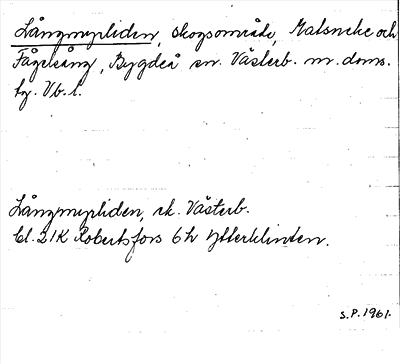 Långmyrliden, skogsområde, Malsneke och
Fågelsång, Bygdeå sn. Västerb. m. doms.
tg. Vb. l.
Långmyrliden, rk. Västerb.
bl. 21K Robertsfors 6h Ytterklinten.
S.P. 1961.